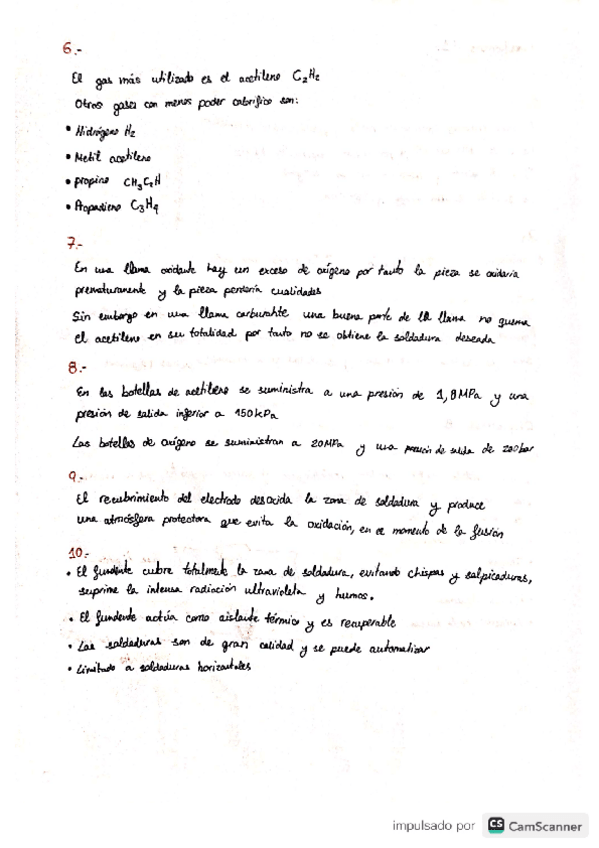 6.-
El gas más utilizado es el acetileno C₂H₂
Otros gases con menos poder calorífico son:
• Hidrógeno H₂
• Metil acetileno
• propino CH₃C₂H
• Propadieno C₃H₄
7.-
En una llama oxidante hay un exceso de oxígeno por tanto la pieza se oxidaría
prematuramente y la pieza perdería cualidades
Sin embargo en una llama carburante una buena parte de la llama no quema
el acetileno en su totalidad por tanto no se obtiene la soldadura deseada
8.-
En las botellas de acetileno se suministra a una presión de 1,8MPa y una
presión de salida inferior a 150kPa
Las botellas de oxígeno se suministran a 20MPa y una presión de salida de 200bar
9.-
El recubrimiento del electrodo desoxida la zona de soldadura y produce
una atmósfera protectora que evita la oxidación, en el momento de la fusión
10.-
• El fundente cubre totalmente la zona de soldadura, evitando chispas y salpicaduras,
suprime la intensa radiación ultravioleta y humos.
• El fundente actúa como aislante térmico y es recuperable
• Las soldaduras son de gran calidad y se puede automatizar
• Limitado a soldaduras horizontales
impulsado por CS CamScanner